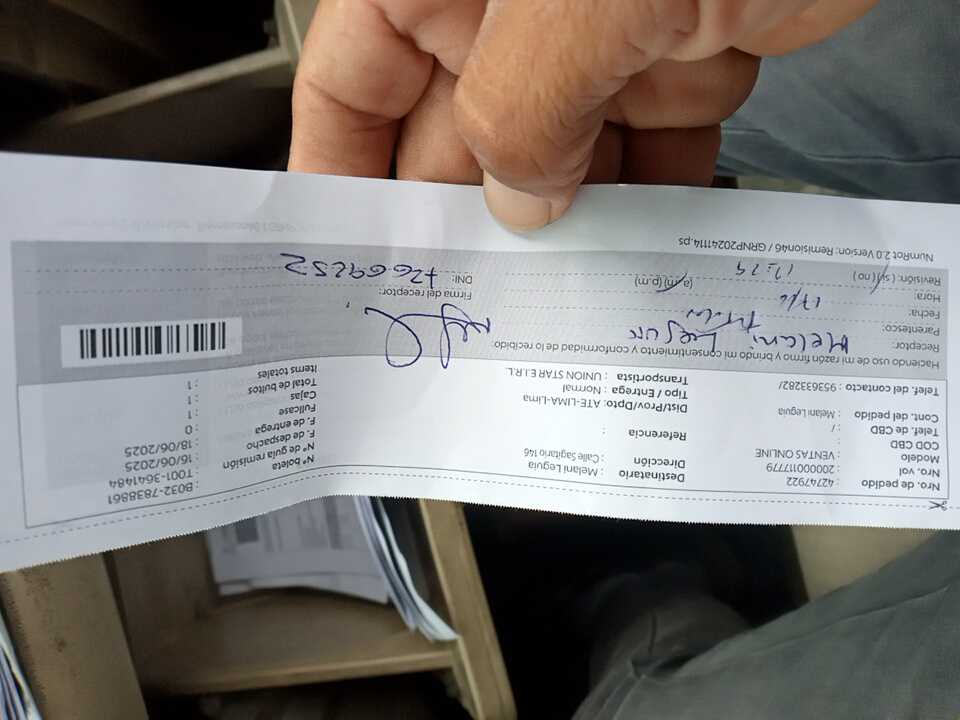 Nro. de pedido : 42747922
Nro. vol : 200000117779
Modelo : VENTAS ONLINE
COD CBD :
Telf. de CBD : /
Cont. del pedido : Melani Leguia
Telef. del contacto : 953633282/
Destinatario : Melani Leguia
Dirección : Calle Sagitario 146
Referencia :
Dist/Prov/Dpto: ATE-LIMA-Lima
Tipo / Entrega : Normal
Transportista : UNION STAR E.I.R.L.
N° boleta : B032-7838861
N° de guía remisión : T001-3641484
F. de despacho : 16/06/2025
F. de entrega : 18/06/2025
Fullcase : 0
Cajas : 1
Total de bultos : 1
Items totales : 1
Haciendo de uso de mi razón y firmo y brindo mi consentimiento y conformidad de lo recibido:
Receptor: Melani
Parentesco: Titular
Fecha: 17/6
Hora: 17:29 (a.m)(p.m)
Revisión: (si)(no)
Firma del receptor:
DNI: 72669252
NumRot 2.0 Version: Remision46 / GRNP20241114.ps